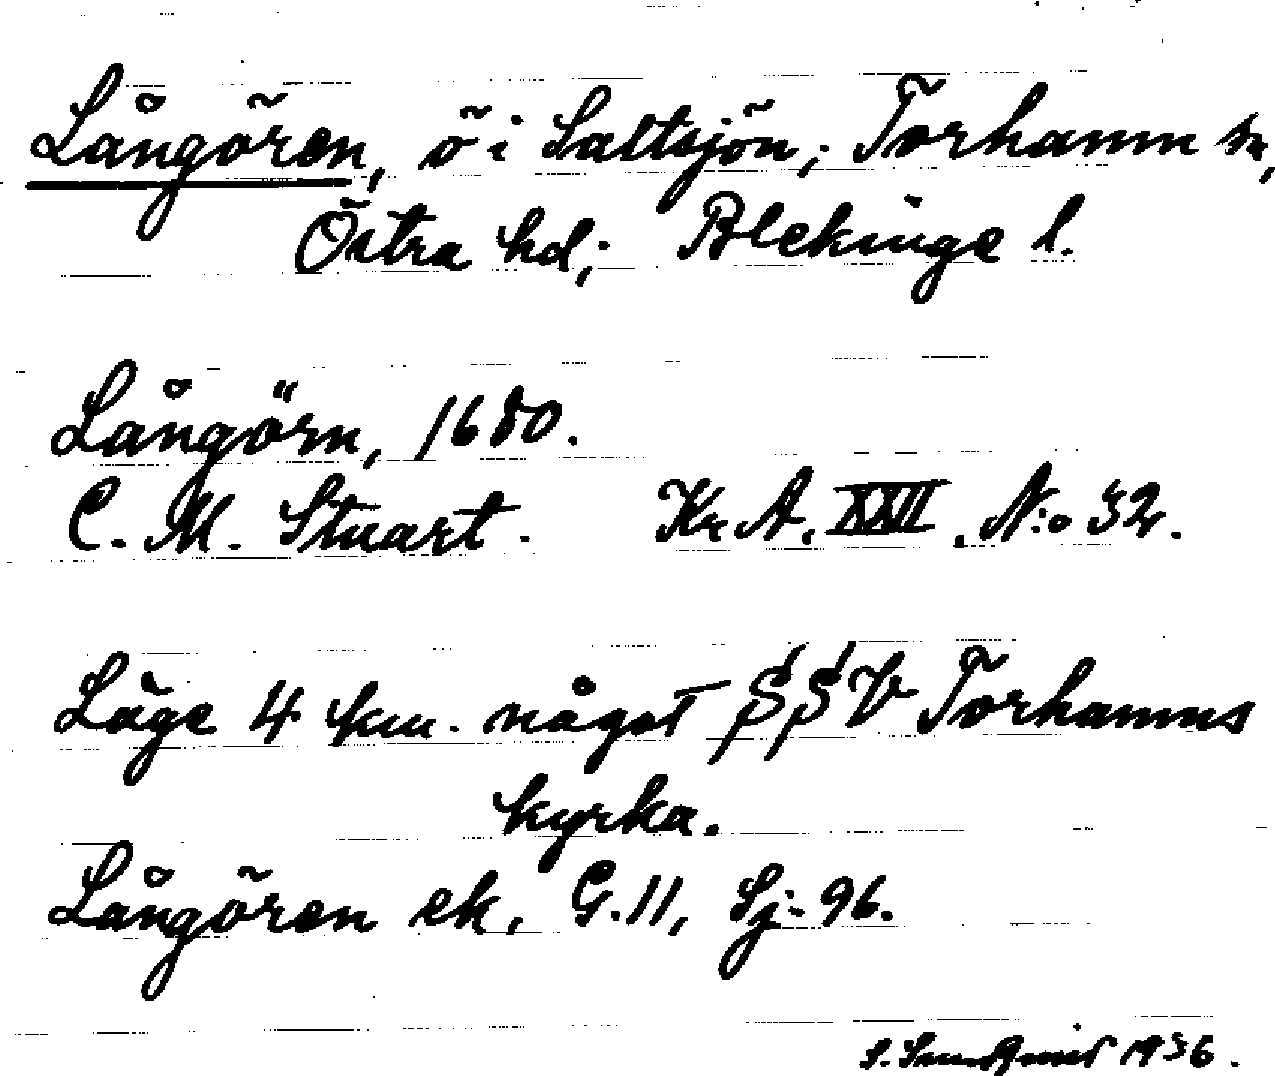 Långören, ö i Saltsjön; Torhamn sn,
Östra hd; Blekinge l.
Långörn, 1680.
C. M. Stuart. Kr. A. XXII. N:o 32.
Läge 4 km. något SSV Torhamns
kyrka.
Långören ek. G. 11, Sj. 96.
1936.